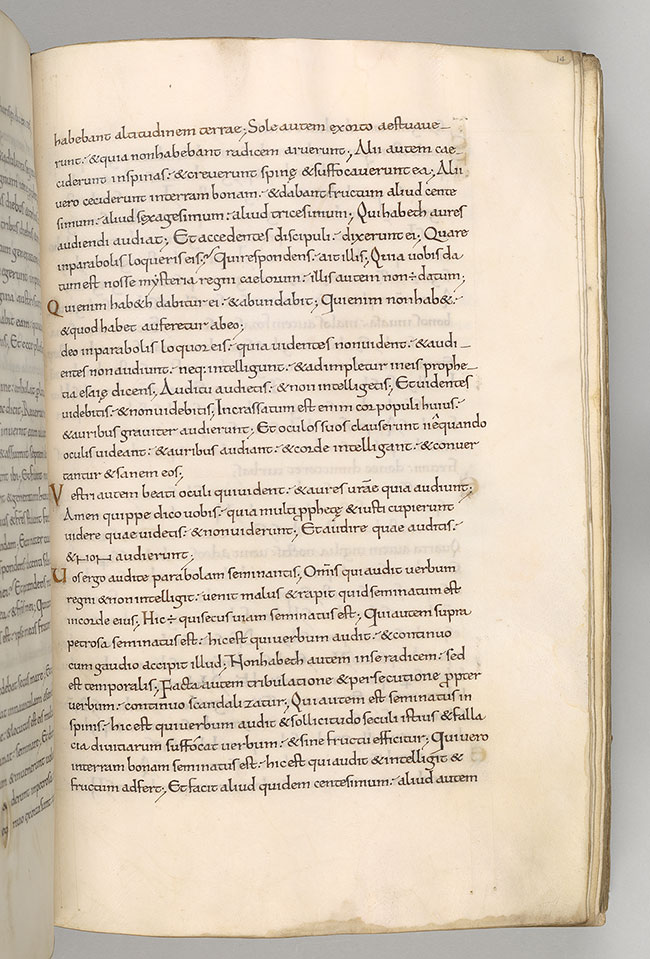 14
habebant altitudinem terrae; Sole autem exorto aestuaue-
runt. & quia nonhabebant radicem aruerunt; Alii autem cae-
ciderunt inspinas. & creuerunt spinę & suffocauerunt ea; Alii
uero ceciderunt interram bonam. & dabant fructum aliud cente
simum. aliud sexagesimum. aliud tricesimum; Qui habet aures
audiendi audiat; Et accedentes discipuli. dixerunt ei; Quare
inparabolis loqueris eis; Qui respondens. ait illis; Quia uobis da
tum est nosse mysteria regni caelorum. illis autem non÷datum;
Qui enim hab& dabitur ei. & abundabit; Qui enim nonhab&.
& quod habet auferetur abeo;
deo inparabolis loquor eis. quia uidentes nonuident. & audi-
entes non audiunt. neq: intelligunt. & adimpletur ineis prophe-
tia esaię dicens; Auditu audietis. & non intelligetis; Et uidentes
uidebitis. & nonuidebitis; Incrassatum est enim cor populi huius.
& auribus grauiter audierunt; Et oculos suos clauserunt nequando
oculis uideant. & auribus audiant. & corde intelligant. & conuer
tantur & sanem eos;
Vestri autem beati oculi quiuident. & aures urāe quia audiunt;
Amen quippe dico uobis. quia multi pphetę & iusti cupierunt
uidere quae uidetis. & nonuiderunt; Et audire quae auditis.
& non audierunt;
Uos ergo audite parabolam seminantis; Omīs qui audit uerbum
regni & non intelligit. uenit malus & rapit quid seminatum est
incorde eius; Hic÷ quisecus uiam seminatus est; Qui autem supra
petrosa seminatus est. hic est qui uerbum audit. & continuo
cum gaudio accipit illud; Non habet autem inse radicem. sed
est temporalis; Facta autem tribulatione & persecutione ppter
uerbum. continuo scandalizatur; Qui autem est seminatus in
spinis. hic est qui uerbum audit & sollicitudo seculi istius & falla
cia diuitiarum suffocat uerbum. & sine fructu efficitur; Qui uero
interram bonam seminatus est. hic est qui audit & intelligit &
fructum adfert; Et facit aliud quidem centesimum. aliud autem